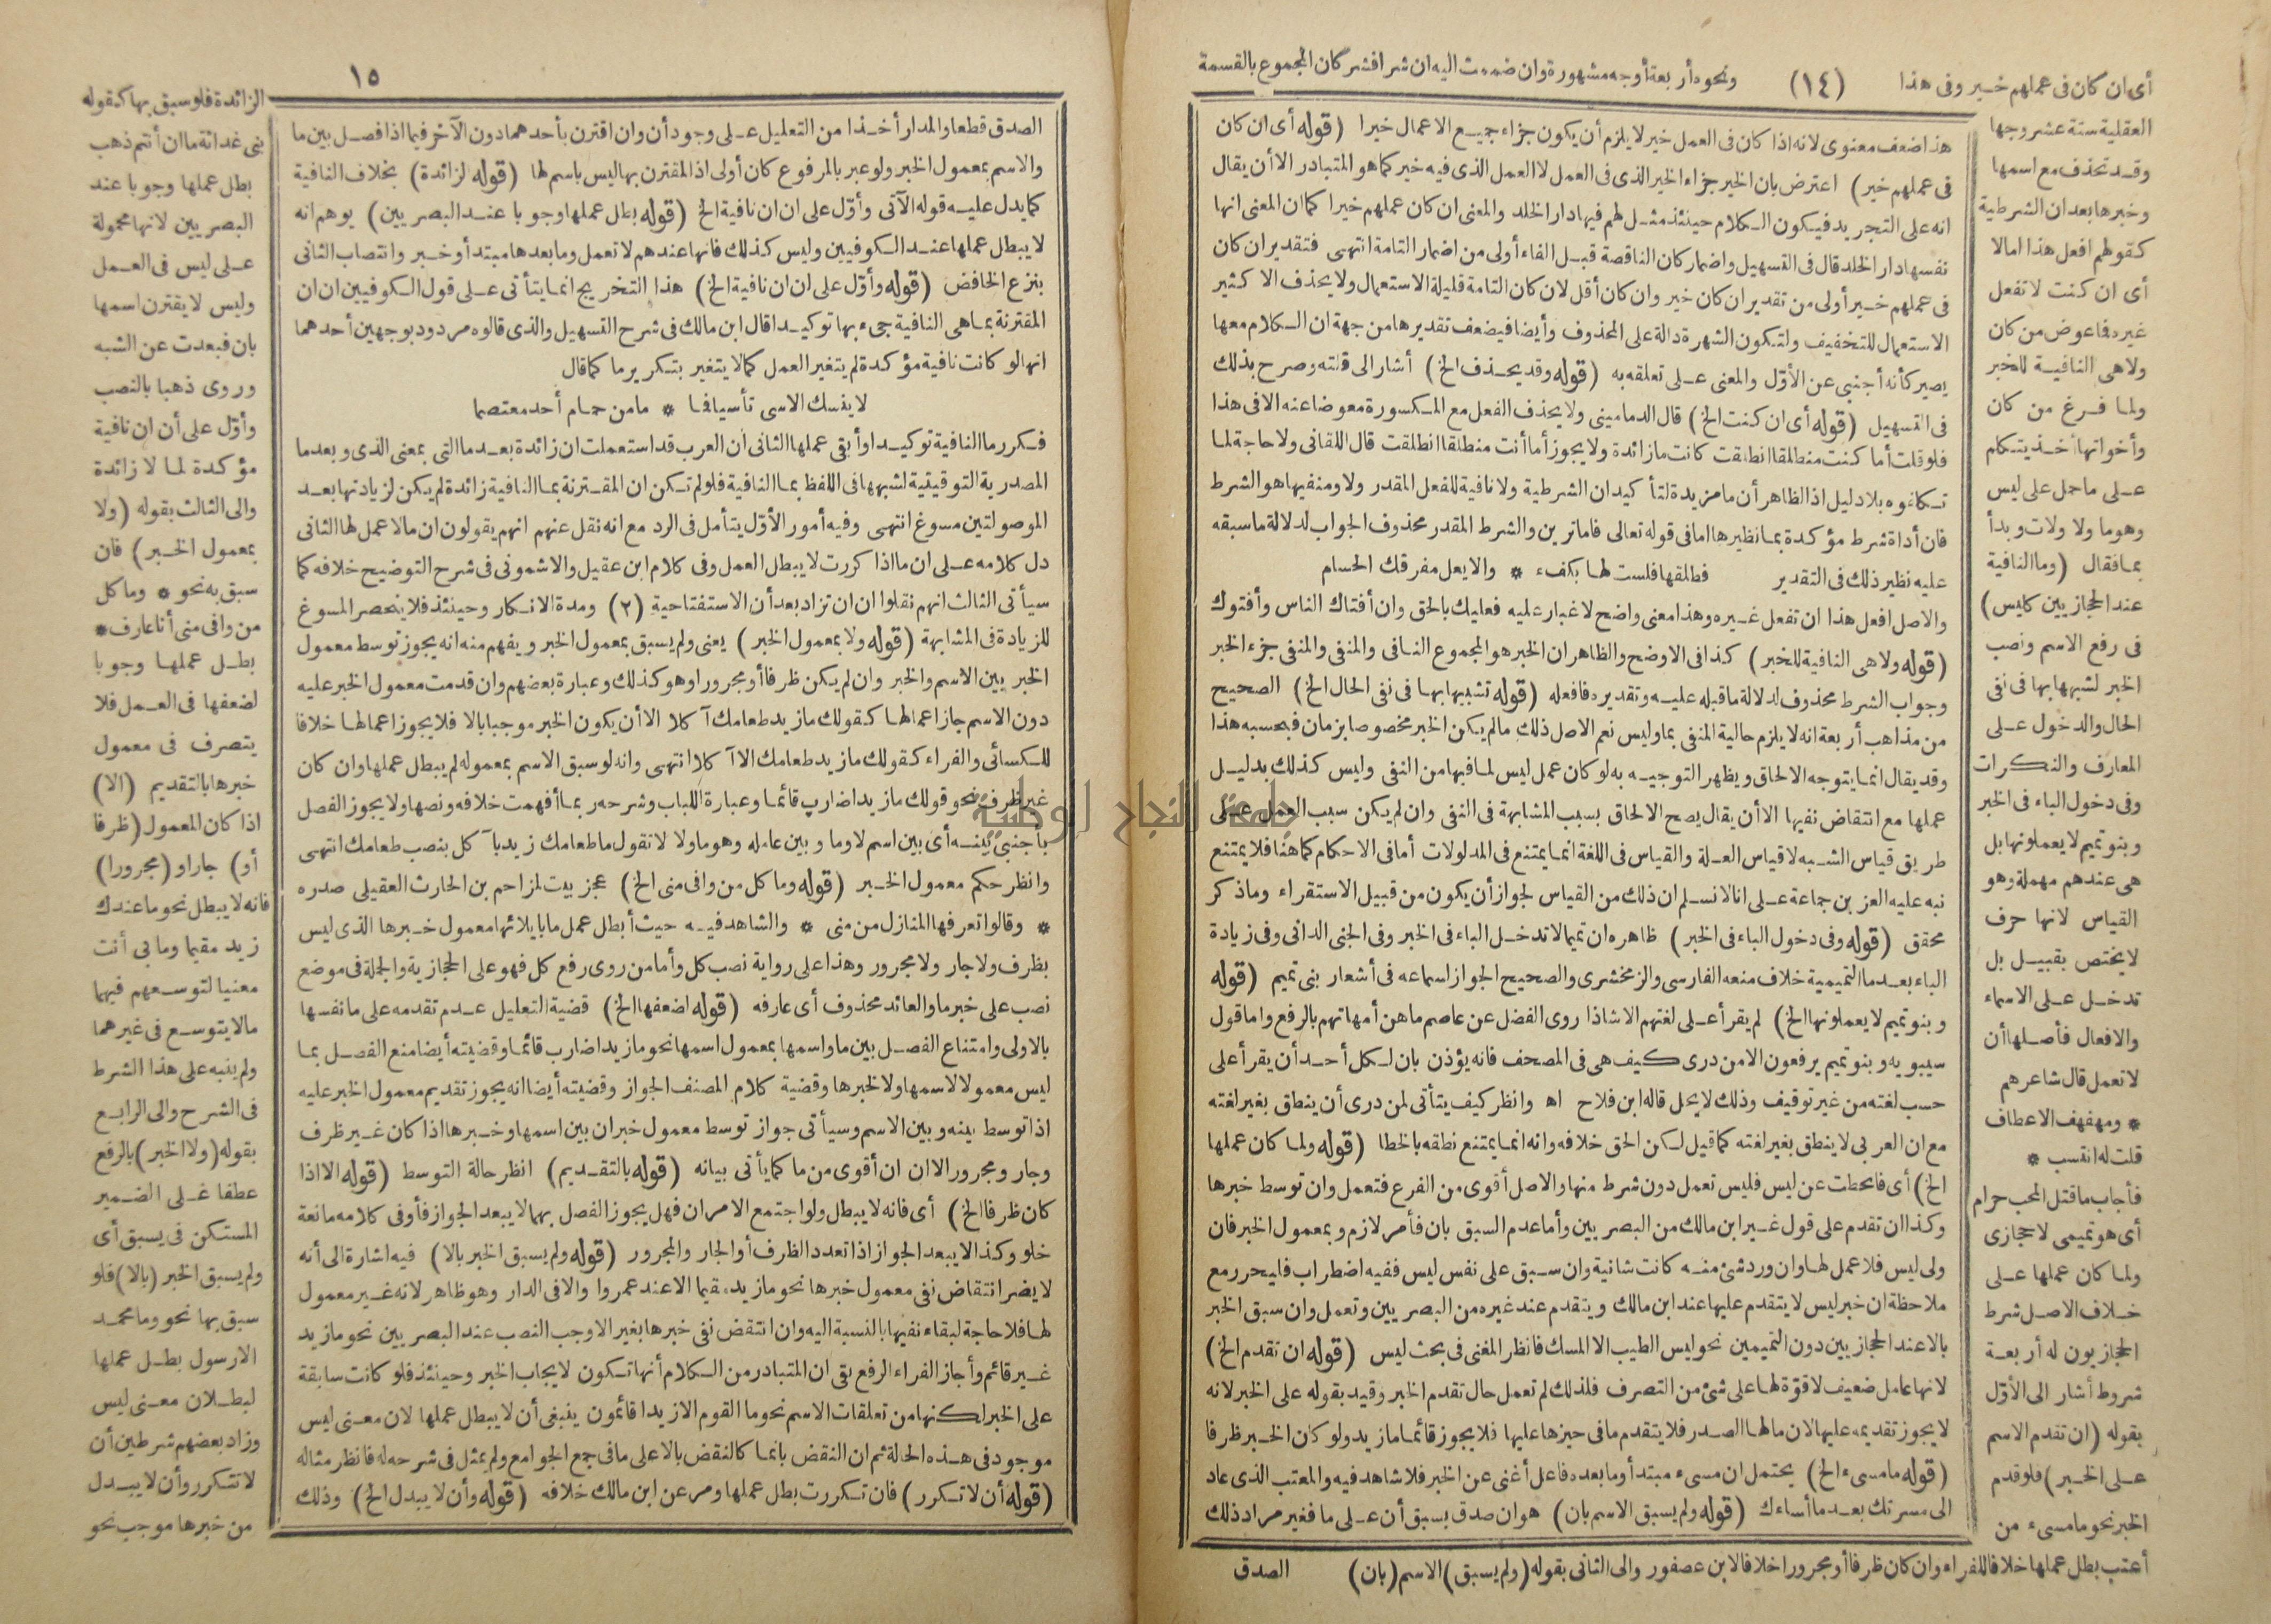 أى ان كان فى عملهم خير وفى هذا (١٤) ونحوه أربعة أوجه مشهورة وان ضممت اليه ان شرا فشر كان المجموع بالقسمة
العقلية ستة عشر وجها
وقد تحذف مع اسمها
وخبرها بعد ان الشرطية
كقولهم افعل هذا امالا
أى ان كنت لا تفعل
غيره فما عوض من كان
ولا هى النافية للخبر
ولما فرغ من كان
وأخواتها أخذ يتكلم
على ما حمل على ليس
وهو ما ولا ولات وبدأ
بما فقال (وما النافية
عند الحجازيين كليس)
فى رفع الاسم ونصب
الخبر لشبهها بها فى نفى
الحال والدخول على
المعارف والنكرات
وفى دخول الباء فى الخبر
وبنو تميم لا يعملونها بل
هى عندهم مهملة وهو
القياس لانها حرف
لا يختص بقبيل بل
تدخل على الاسماء
والافعال فأصلها أن
لا تعمل قال شاعرهم
* ومهفهف الاعطاف
قلت له انتسب *
فأجاب ما قتل المحب حرام
أى هو تميمى لا حجازى
ولما كان عملها على
خلاف الاصل شرط
الحجازيون له أربعة
شروط أشار الى الأوّل
بقوله (ان تقدم الاسم
على الخبر) فلو قدم
الخبر نحو ما مسىء من
أعتب بطل عملها خلافا للفراء وان كان ظرفا أو مجرورا خلافا لابن عصفور والى الثانى بقوله (ولم يسبق) الاسم (بان)
هذا ضعف معنوى لانه اذا كان فى العمل خير لا يلزم أن يكون جزاء جميع الاعمال خيرا (قوله أى ان كان
فى عملهم خير) اعترض بان الخير جزاء الخير الذى فى العمل لا العمل الذى فيه خير كما هو المتبادر الا أن يقال
انه على التجريد فيكون الكلام حينئذ مثل لهم فيها دار الخلد والمعنى ان كان عملهم خيرا كما ان المعنى انها
نفسها دار الخلد قال فى التسهيل واضمار كان الناقصة قبل الفاء أولى من اضمار التامة انتهى فتقدير ان كان
فى عملهم خير أولى من تقدير ان كان خير وان كان أقل لان كان التامة قليلة الاستعمال ولا يحذف الا كثير
الاستعمال للتخفيف ولتكون الشهرة دالة على المحذوف وأيضا فيضعف تقديرها من جهة ان الكلام معها
يصير كأنه أجنبى عن الأوّل والمعنى على تعلقه به (قوله وقد يحذف الخ) أشار الى قلته وصرح بذلك
فى التسهيل (قوله أى ان كنت الخ) قال الدمامينى ولا يحذف الفعل مع المكسورة معوضا عنه الا فى هذا
فلو قلت أما كنت منطلقا انطلقت كانت ما زائدة ولا يجوز أما أنت منطلقا انطلقت قال اللقانى ولا حاجة لما
تكلفوه بلا دليل اذ الظاهر أن ما مزيدة لتأكيد ان الشرطية ولا نافية للفعل المقدر ولا ومنفيها هو الشرط
فان أداة شرط مؤكدة بما نظيرها امافى قوله تعالى فاما ترين والشرط المقدر محذوف الجواب لدلالة ما سبقه
عليه نظير ذلك فى التقدير فطلقها فلست لها بكفء * والا يعل مفرقك الحسام
والاصل افعل هذا ان تفعل غيره وهذا معنى واضح لا غبار عليه فعليك بالحق وان أفتاك الناس وأفتوك
(قوله ولا هى النافية للخبر) كذا فى الاوضح والظاهر ان الخبر هو المجموع النافى والمنفى والمنفى جزء الخبر
وجواب الشرط محذوف لدلالة ما قبله عليه وتقديره فافعله (قوله تشبيها بها فى نفى الحال الخ) الصحيح
من مذاهب أربعة انه لا يلزم حالية المنفى بما وليس نعم الاصل ذلك ما لم يكن الخبر مخصوصا بزمان فبحسبه هذا
وقد يقال انما يتوجه الالحاق ويظهر التوجيه به لو كان عمل ليس لما فيها من النفى وليس كذلك بدليل
عملها مع انتقاض نفيها الا أن يقال يصح الالحاق بسبب المشابهة فى النفى وان لم يكن سبب العمل على
طريق قياس الشبه لا قياس العلة والقياس فى اللغة انما يمتنع فى المدلولات أما فى الاحكام كما هنا فلا يمتنع
نبه عليه العز بن جماعة على انا لا نسلم ان ذلك من القياس لجواز أن يكون من قبيل الاستقراء وما ذكر
محقق (قوله وفى دخول الباء فى الخبر) ظاهره ان تميما لا تدخل الباء فى الخبر وفى الجنى الدانى وفى زيادة
الباء بعد ما التميمية خلاف منعه الفارسى والزمخشرى والصحيح الجواز لسماعه فى أشعار بنى تميم (قوله
وبنو تميم لا يعملونها الخ) لم يقرأ على لغتهم الا شاذا روى الفضل عن عاصم ما هن أمهاتهم بالرفع واما قول
سيبويه وبنو تميم يرفعون الا من درى كيف هى فى المصحف فانه يؤذن بان لكل أحد أن يقرأ على
حسب لغته من غير توقيف وذلك لا يحل قاله ابن فلاح اه وانظر كيف يتأتى لمن درى أن ينطق بغير لغته
مع ان العربى لا ينطق بغير لغته كما قيل لكن الحق خلافه وانه انما يمتنع نطقه بالخطا (قوله ولما كان عملها
الخ) أى فانحطت عن ليس فليس تعمل دون شرط منها والاصل أقوى من الفرع فتعمل وان توسط خبرها
وكذا ان تقدم على قول غير ابن مالك من البصريين وأما عدم السبق بان فأمر لازم وبمعمول الخبر فان
ولى ليس فلا عمل لها وان ورد شئ منه كانت شانية وان سبق على نفس ليس ففيه اضطراب فليحرر مع
ملاحظة ان خبر ليس لا يتقدم عليها عند ابن مالك ويتقدم عند غيره من البصريين وتعمل وان سبق الخبر
بالا عند الحجازيين دون التميميين نحو ليس الطيب الا المسك فانظر المغنى فى بحث ليس (قوله ان تقدم الخ)
لانها عامل ضعيف لا قوّة لها على شئ من التصرف فلذلك لم تعمل حال تقدم الخبر وقيد بقوله على الخبر لانه
لا يجوز تقديمه عليها لان ما لها الصدر فلا يتقدم ما فى حيزها عليها فلا يجوز قائما ما زيد ولو كان الخبر ظرفا
(قوله ما مسىء الخ) يحتمل ان مسىء مبتدأ وما بعده فاعل أغنى عن الخبر فلا شاهد فيه والمعتب الذى عاد
الى مسرتك بعد ما أساءك (قوله ولم يسبق الاسم بان) هو ان صدق بسبق أن على ما فغير مراد ذلك
الصدق
١٥
الصدق قطعا والمدار أخذا من التعليل على وجود أن وان اقترن بأحدهما دون الآخر فيما اذا فصل بين ما
والاسم بمعمول الخبر ولو عبر بالمرفوع كان أولى اذ المقترن بها ليس باسم لها (قوله لزائدة) بخلاف النافية
كما يدل عليه قوله الآتى وأوّل على ان ان نافية الخ (قوله بطل عملها وجوبا عند البصريين) يوهم انه
لا يبطل عملها عند الكوفيين وليس كذلك فانها عندهم لا تعمل وما بعدها مبتدأ وخبر وانتصاب الثانى
بنزع الخافض (قوله وأوّل على ان ان نافية الخ) هذا التخريج انما يتأتى على قول الكوفيين ان ان
المقترنة بما هى النافية جىء بها توكيدا قال ابن مالك فى شرح التسهيل والذى قالوه مردود بوجهين أحدهما
انها لو كانت نافية مؤكدة لم يتغير العمل كما لا يتغير بتكرير ما كما قال
لا ينسك الاسى تأسيا فما * ما من حمام أحد معتصما
فكرر ما النافية توكيدا وأبقى عملها الثانى أن العرب قد استعملت ان زائدة بعد ما التى بمعنى الذى وبعد ما
المصدرية التوقيتية لشبهها فى اللفظ بما النافية فلو لم تكن ان المقترنة بما النافية زائدة لم يكن لزيادتها بعد
الموصولتين مسوغ انتهى وفيه أمور الأوّل يتأمل فى الرد مع انه نقل عنهم انهم يقولون ان ما لا عمل لها الثانى
دل كلامه على ان ما اذا كررت لا يبطل العمل وفى كلام ابن عقيل والاشمونى فى شرح التوضيح خلافه كما
سيأتى الثالث انهم نقلوا ان ان تزاد بعد أن الاستفتاحية (٢) ومدة الانكار وحينئذ فلا ينحصر المسوغ
للزيادة فى المشابهة (قوله ولا بمعمول الخبر) يعنى ولم يسبق بمعمول الخبر ويفهم منه انه يجوز توسط معمول
الخبر بين الاسم والخبر وان لم يكن ظرفا أو مجرورا وهو كذلك وعبارة بعضهم وان قدمت معمول الخبر عليه
دون الاسم جاز اعمالها كقولك ما زيد طعامك آكلا الا أن يكون الخبر موجبا بالا فلا يجوز اعمالها خلافا
للكسائى والفراء كقولك ما زيد طعامك الا آكلا انتهى وانه لو سبق الاسم بمعموله لم يبطل عملها وان كان
غير ظرف نحو قولك ما زيدا ضارب قائما وعبارة اللباب وشرحه بما أفهمت خلافه ونصها ولا يجوز الفصل
بأجنبى بينه أى بين اسم لا وما وبين عامله وهو ما ولا لا تقول ما طعامك زيد بآكل بنصب طعامك انتهى
وانظر حكم معمول الخبر (قوله وما كل من وافى منى الخ) عجز بيت لمزاحم بن الحارث العقيلى صدره
* وقالوا تعرفها المنازل من منى * والشاهد فيه حيث أبطل عمل ما بايلائها معمول خبرها الذى ليس
بظرف ولا جار ولا مجرور وهذا على رواية نصب كل وأما من روى رفع كل فهو على الحجازية والجملة فى موضع
نصب على خبر ما والعائد محذوف أى عارفه (قوله لضعفها الخ) قضية التعليل عدم تقدمه على ما نفسها
بالاولى وامتناع الفصل بين ما واسمها بمعمول اسمها نحو ما زيدا ضارب قائما وقضيته أيضا منع الفصل بما
ليس معمولا لاسمها ولا لخبرها وقضية كلام المصنف الجواز وقضيته أيضا انه يجوز تقديم معمول الخبر عليه
اذا توسط بينه وبين الاسم وسيأتى جواز توسط معمول خبر ان بين اسمها وخبرها اذا كان غير ظرف
وجار ومجرور الا ان ان أقوى من ما كما يأتى بيانه (قوله بالتقديم) انظر حالة التوسط (قوله الا اذا
كان ظرفا الخ) أى فانه لا يبطل ولو اجتمع الامران فهل يجوز الفصل بهما لا يبعد الجواز فأو فى كلامه مانعة
خلو وكذا لا يبعد الجواز اذا تعدد الظرف أو الجار والمجرور (قوله ولم يسبق الخبر بالا) فيه اشارة الى أنه
لا يضر انتقاض نفى معمول خبرها نحو ما زيد مقيما الا عند عمرو أو الا فى الدار وهو ظاهر لانه غير معمول
لها فلا حاجة لبقاء نفيها بالنسبة اليه وان انتقض نفى خبرها بغير الا وجب النصب عند البصريين نحو ما زيد
غير قائم وأجاز الفراء الرفع بقى ان المتبادر من الكلام أنها تكون لايجاب الخبر وحينئذ فلو كانت سابقة
على الخبر لكنها من تعلقات الاسم نحو ما القوم الا زيدا قائمون ينبغى أن لا يبطل عملها لان معنى ليس
موجود فى هذه الحالة ثم ان النقض بانما كالنقض بالا على ما فى جمع الجوامع ولم يمثل فى شرحه له فانظر مثاله
(قوله أن لا تكرر) فان تكررت بطل عملها ومر عن ابن مالك خلافه (قوله وأن لا يبدل الخ) وذلك
الزائدة فلو سبق بها كقوله
بنى غدانة ما ان أنتم ذهب
بطل عملها وجوبا عند
البصريين لانها محمولة
على ليس فى العمل
وليس لا يقترن اسمها
بان فبعدت عن الشبه
وروى ذهبا بالنصب
وأوّل على أن ان نافية
مؤكدة لما لا زائدة
والى الثالث بقوله (ولا
بمعمول الخبر) فان
سبق به نحو * وما كل
من وافى منى أنا عارف *
بطل عملها وجوبا
لضعفها فى العمل فلا
يتصرف فى معمول
خبرها بالتقديم (الا)
اذا كان المعمول (ظرفا
أو) جارا و (مجرورا)
فانه لا يبطل نحو ما عندك
زيد مقيما وما بى أنت
معنيا لتوسعهم فيهما
ما لا يتوسع فى غيرهما
ولم ينبه على هذا الشرط
فى الشرح والى الرابع
بقوله (ولا الخبر) بالرفع
عطفا على الضمير
المستكن فى يسبق أى
ولم يسبق الخبر (بالا) فلو
سبق بها نحو وما محمد
الا رسول بطل عملها
لبطلان معنى ليس
وزاد بعضهم شرطين أن
لا تتكرر وأن لا يبدل
من خبرها موجب نحو
جامعة النجاح الوطنية